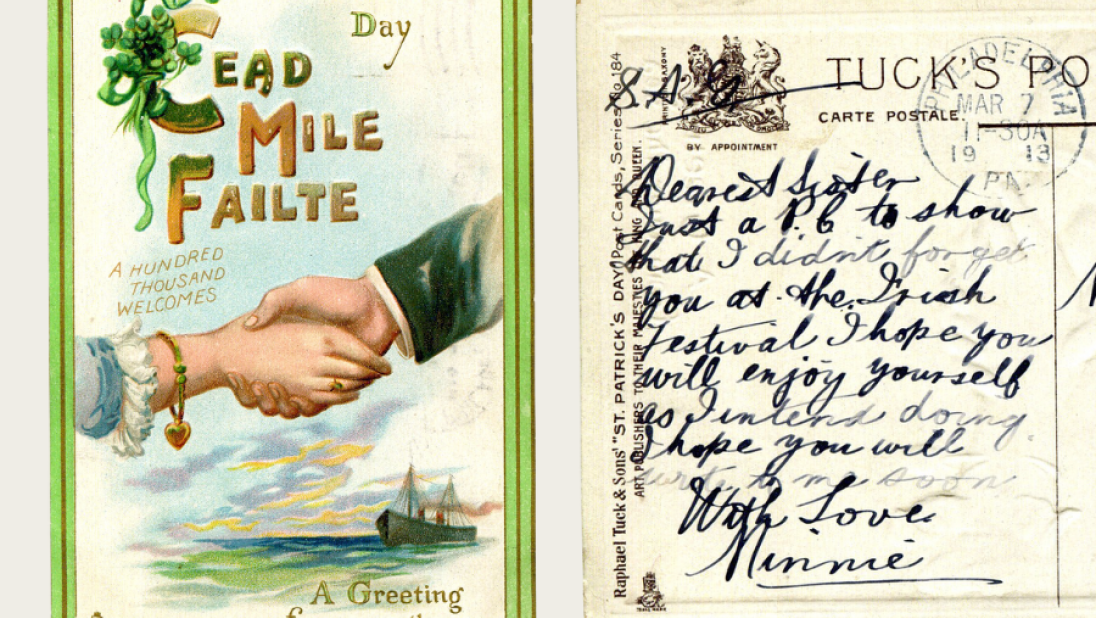 Day
CEAD
MILE
FAILTE
A HUNDRED
THOUSAND
WELCOMES
A Greeting
S.A.G
TUCK'S PO
CARTE POSTALE.
BY APPOINTMENT
PHILADELPHIA
MAR 7
11-30A
1913
PA
Raphael Tuck & Sons' "ST. PATRICK'S DAY" Post Cards, Series No 184
ART PUBLISHERS TO THEIR MAJESTIES THE KING AND QUEEN.
Dearest Sister
Just a P.C to show
that I didn't forget
you at the Irish
Festival I hope you
will enjoy yourself
as I intend doing
I hope you will
write to me soon
With Love
Minnie